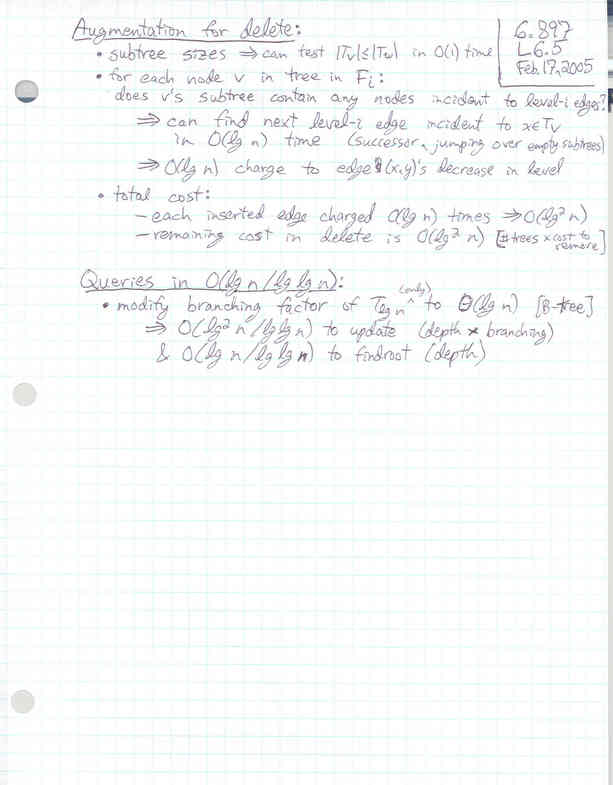 Augmentation for delete:
6.897
L6.5
Feb. 17, 2005
• subtree sizes ⇒ can test |Tv|≤|Tw| in O(1) time
• for each node v in tree in Fi:
does v's subtree contain any nodes incident to level-i edges?
⇒ can find next level-i edge incident to x∈Tv
in O(lg n) time (successor, jumping over empty subtrees)
⇒ O(lg n) charge to edge (x,y)'s decrease in level
• total cost:
– each inserted edge charged O(lg n) times ⇒ O(lg² n)
– remaining cost in delete is O(lg² n) [# trees × cost to remove]
Queries in O(lg n / lg lg n):
• modify branching factor of Tlg n ^ (only) to Θ(lg n) [B-tree]
⇒ O(lg² n / lg lg n) to update (depth × branching)
& O(lg n / lg lg n) to findroot (depth)